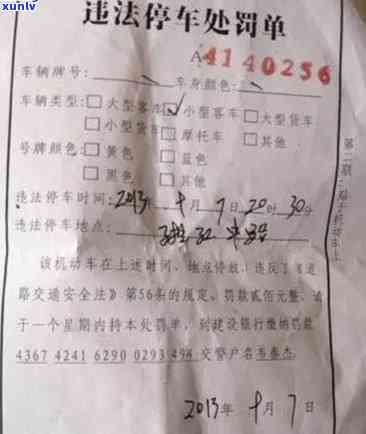 xunlv
违法停车处罚单
A4140256
车辆牌号: 车身颜色:
车辆类型: 大型客车 小型客车 大型货车
小型货车 摩托车 其他
号牌颜色: 黄色 蓝色
黑色 其他
违法停车时间: 2013年 十月 7日 20时 30分
违法停车地点:
该机动车在上述时间、地点停放，违反了《道
路交通安全法》第56条的规定。罚款贰佰元整，请
于一个星期内持本处罚单，到建设银行缴纳罚款
4367 4241 6290 0293 498 交警户名韦泰杰
2013年 十月 7日
第二联 贴于机动车上